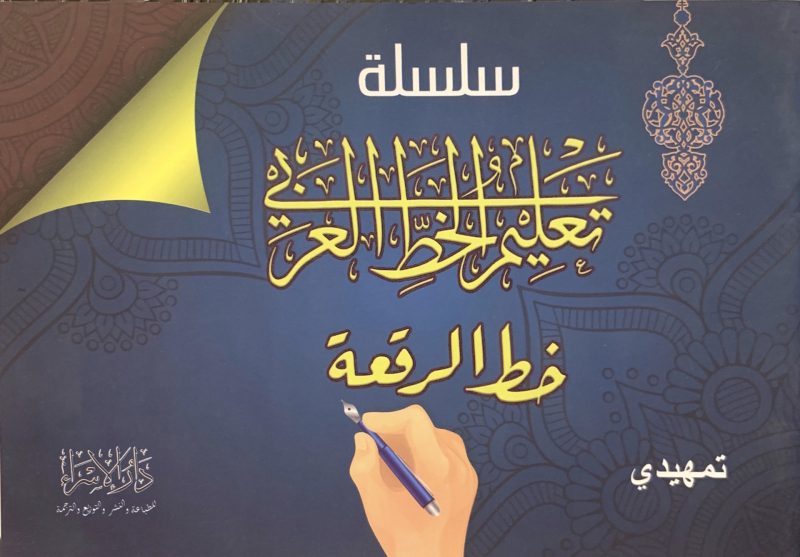 سلسلة
تعليم الخط العربي
خط الرقعة
تمهيدي
دار الإسراء
للطباعة والنشر والتوزيع والترجمة